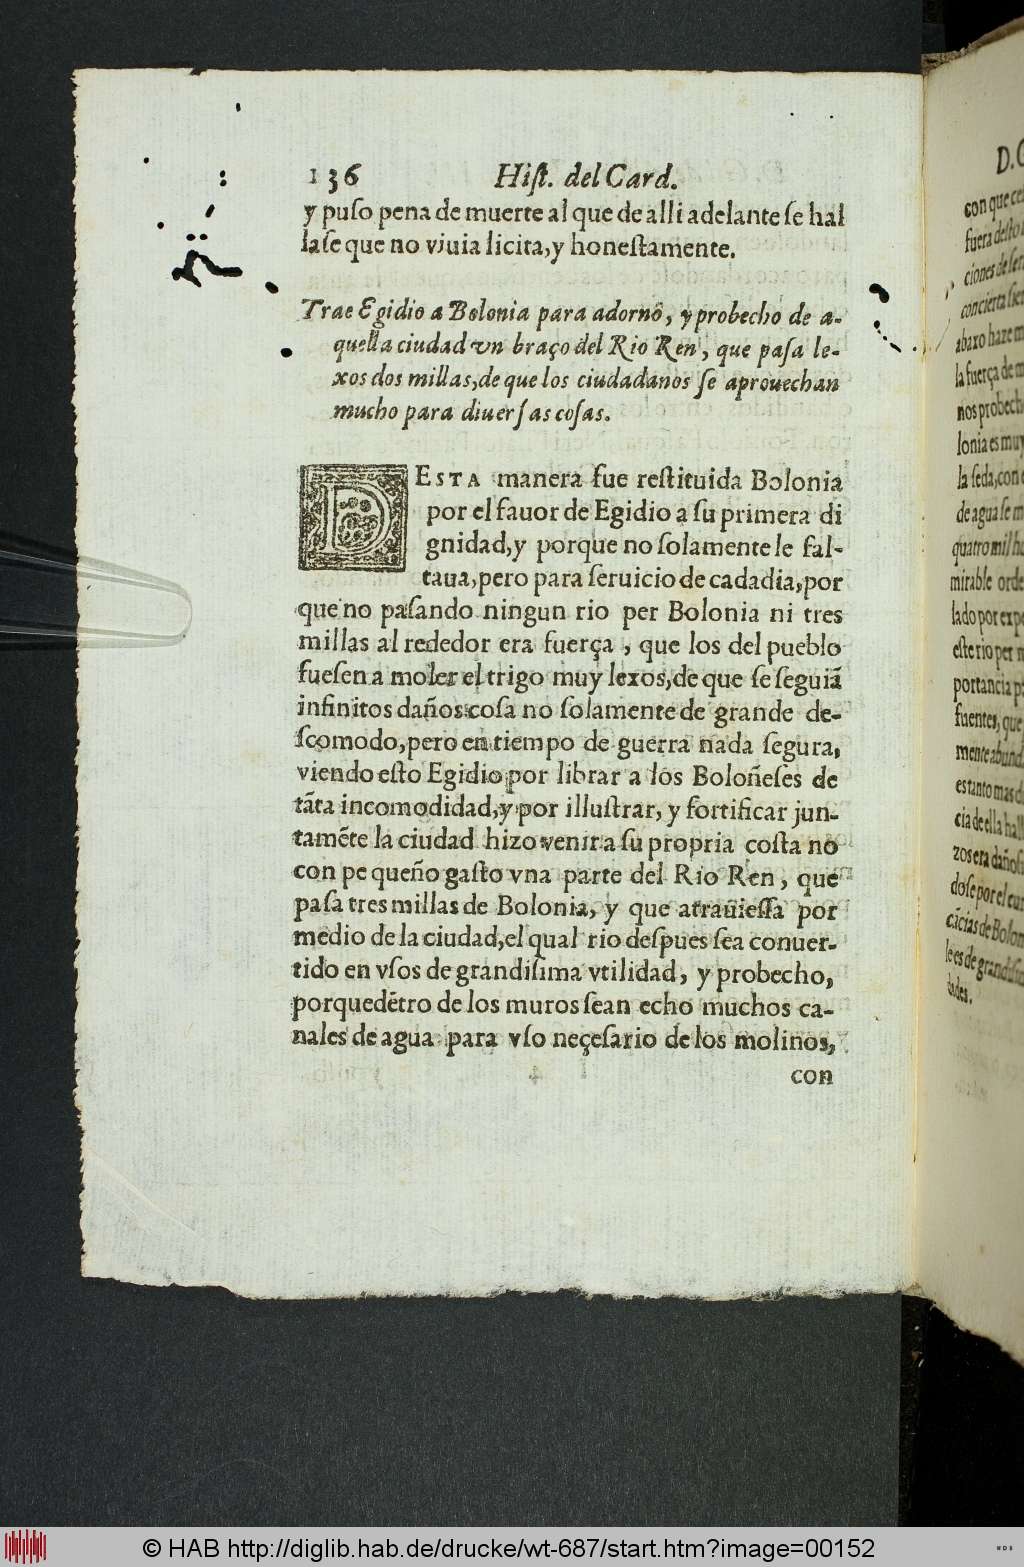 136 Hiſt. del Card.
y puſo pena de muerte al que de alli adelante ſe hal
laſe que no viuia licita, y honeſtamente.
Trae Egidio a Bolonia para adorno, y probecho de a-
quella ciudad vn braço del Rio Ren, que paſa le-
xos dos millas, de que los ciudadanos ſe aprouechan
mucho para diuerſas coſas.
DESTA manera fue reſtituida Bolonia
por el fauor de Egidio a ſu primera di
gnidad, y porque no ſolamente le fal-
taua, pero para ſeruicio de cadadia, por
que no paſando ningun rio per Bolonia ni tres
millas al rededor era fuerça, que los del pueblo
fueſen a moler el trigo muy lexos, de que ſe ſeguiã
infinitos daños: coſa no ſolamente de grande de-
ſcomodo, pero en tiempo de guerra nada ſegura,
viendo eſto Egidio por librar a los Boloñeſes de
tãta incomodidad, y por illuſtrar, y fortificar jun-
tamẽte la ciudad hizo venir a ſu propria coſta no
con pequeño gaſto vna parte del Rio Ren, que
paſa tres millas de Bolonia, y que atrauieſſa por
medio de la ciudad, el qual rio deſpues ſea conuer-
tido en vſos de grandiſima vtilidad, y probecho,
porquedẽtro de los muros ſean echo muchos ca-
nales de agua para vſo neçeſario de los molinos,
con
D.
con que
fuera deſto
ciones de
concierta
abaxo haze
la fuerça de
nos probech
lonia es muy
la ſeda, con
de agua ſe m
quatro mil
mirable orde
lado por exp
eſte rio per
portancia p
fuentes, que
mente abund
es tanto mas d
cia de ella hall
zos era dañoſ
doſe por el cur
cãcias de Bolon
le es de grandiſi
dades.
© HAB http://diglib.hab.de/drucke/wt-687/start.htm?image=00152